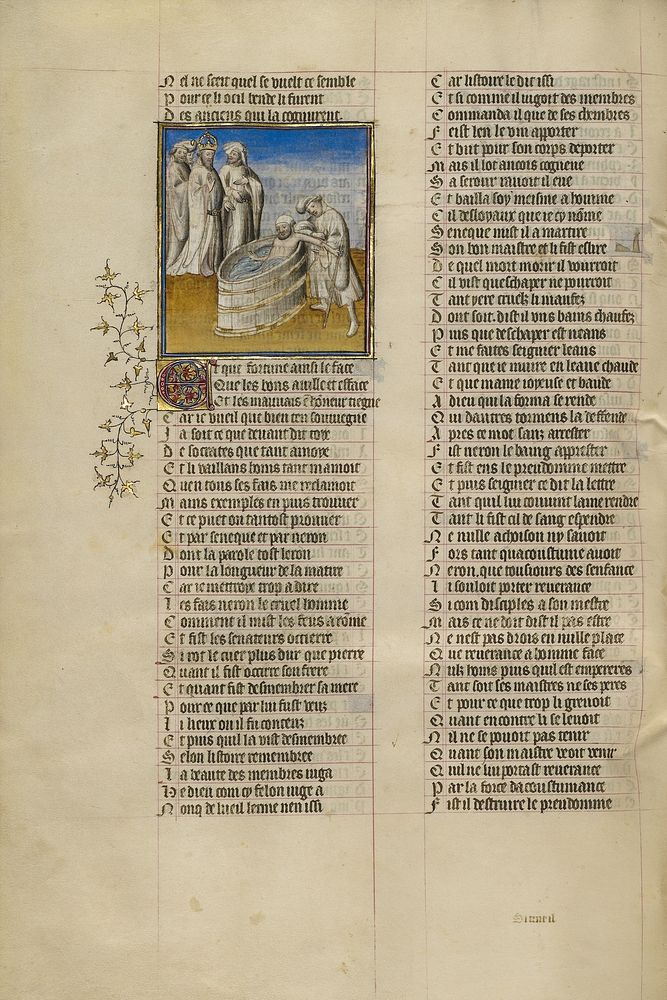 N el ne scet quel se vuelt ce semble
P our ce li oeil bende li furent
D es anciens qui la cognurent
E t que fortune ainsi le face
Que les bons auille et efface
Et les mauuais en honeur tiegne
C ar ie vueil que bien ten souuegne
J a soit ce que deuant dit toye
D e socrates que tant amoye
E t li vaillans homs tant mamoit
Q uen tous ses fais me reclamoit
M ains exemples en puis trouuer
E t ce puet on tantost prouuer
E t par seneque et par neron
D ont la parole tost leron
P our la longueur de la matire
C ar ie mettroye trop a dire
L es fais neron le cruel homme
C omment il mist les feus a rome
E t fist les senateurs occierre
S i rot le cuer plus dur que pierre
Q uant il fist occirre son frere
E t quant fist desmembrer sa mere
P our ce que par lui fust veuz
L i lieux ou il fu conceuz
E t puis quil la vist desmembree
S elon listoire remembree
L a beaute des membres iuga
H e dieu com cy felon iuge a
N onq de lueil lerme nen issi
C ar listoire le dit issi
E t si comme il iugoit des membres
C ommanda il que de ses chembres
F eist len le vin apporter
E t but pour son corps deporter
M ais il lot ancois cogneue
S a serour rauoit il eue
E t bailla soy meisme a homme
C il desloyaux que ie cy nomme
S eneque mist il a martire
S on bon maistre et li fist eslire
D e quel mort morir il vourroit
C il vist queschaper ne pourroit
T ant yere cruelz li maufez
D ont soit dist il vns bains chaufez
P uis que deschaper est neans
E t me faites seignier leans
T ant que ie muire en leaue chaude
E t que mame ioyeuse et baude
A dieu qui la forma se rende
Q ui dautres tormens la deffende
A pres ce mot sanz arrester
F ist neron le baing apprester
E t fist ens le preudomme mettre
E t puis seignier ce dit la lettre
T ant quil lui conuint lame rendre
T ant li fist cil de sang espendre
N e nulle achoison ny sauoit
F ors tant quacoustume auoit
N eron, que tousiours des senfance
L i souloit porter reuerance
S i com disciples a son mestre
M ais ce ne doit dist il pas estre
N e nest pas drois en nulle place
Q ue reuerance a homme face
N ulz homs puis quil est empereres
T ant soit ses maistres ne ses peres
E t pour ce que trop li greuoit
Q uant encontre li se leuoit
N il ne se pouoit pas tenir
Q uant son maistre veoit venir
Q uil ne lui portast reuerance
P ar la force dacoustumance
F ist il destruire le preudomme